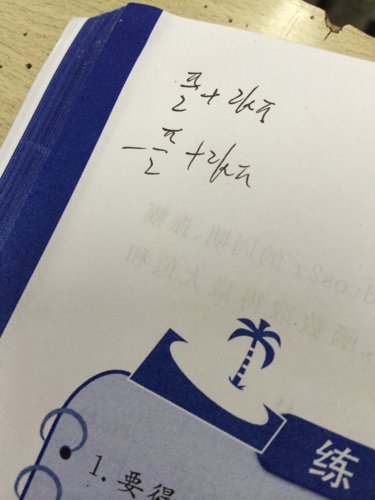 π/2 + 2kπ
-π/2 + 2kπ
练
1. 要得